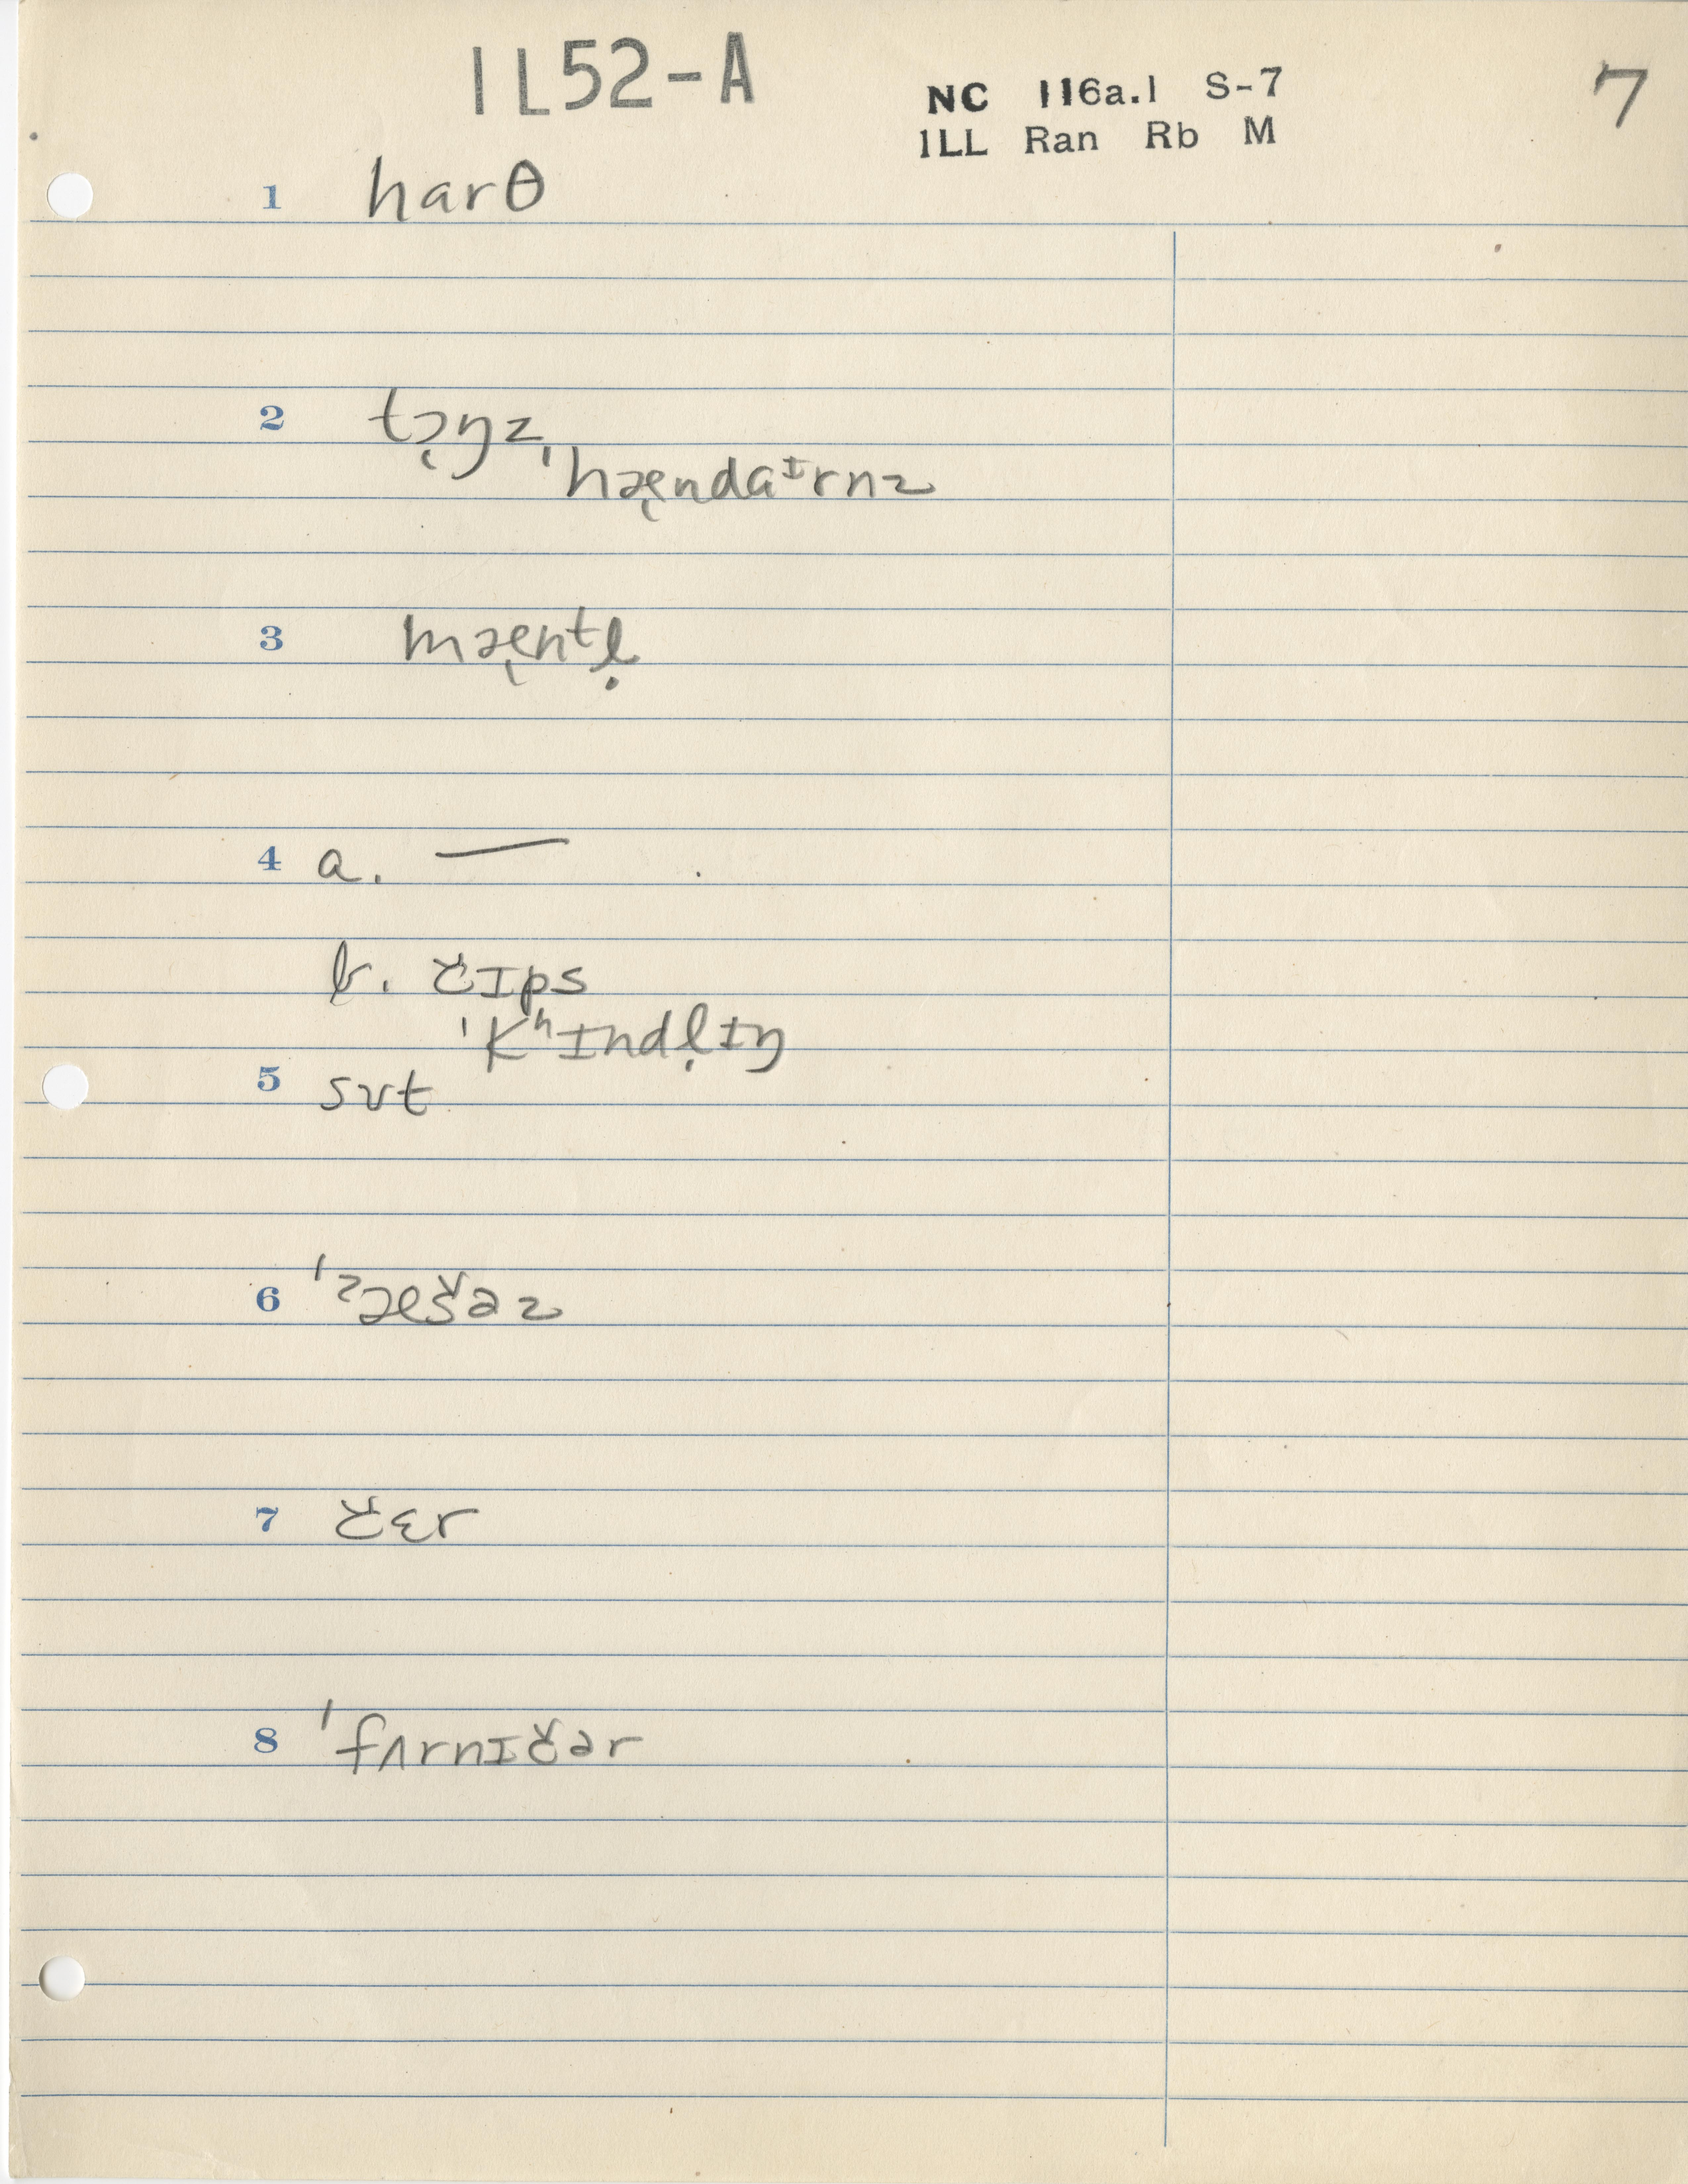 1L52-A
NC 116a.1 S-7
1LL Ran Rb M
7
1 harθ
2 tɔ̨ŋz,
ˈhæ̨ndaᶦrnz
3 mæ̨ntl̩
4 a. —
b. č̵ɪps
ˈkʰɪndl̩ɪŋ
5 sʊt
6 ˈæšəz
7 čɛr
8 ˈfʌrnɪčər